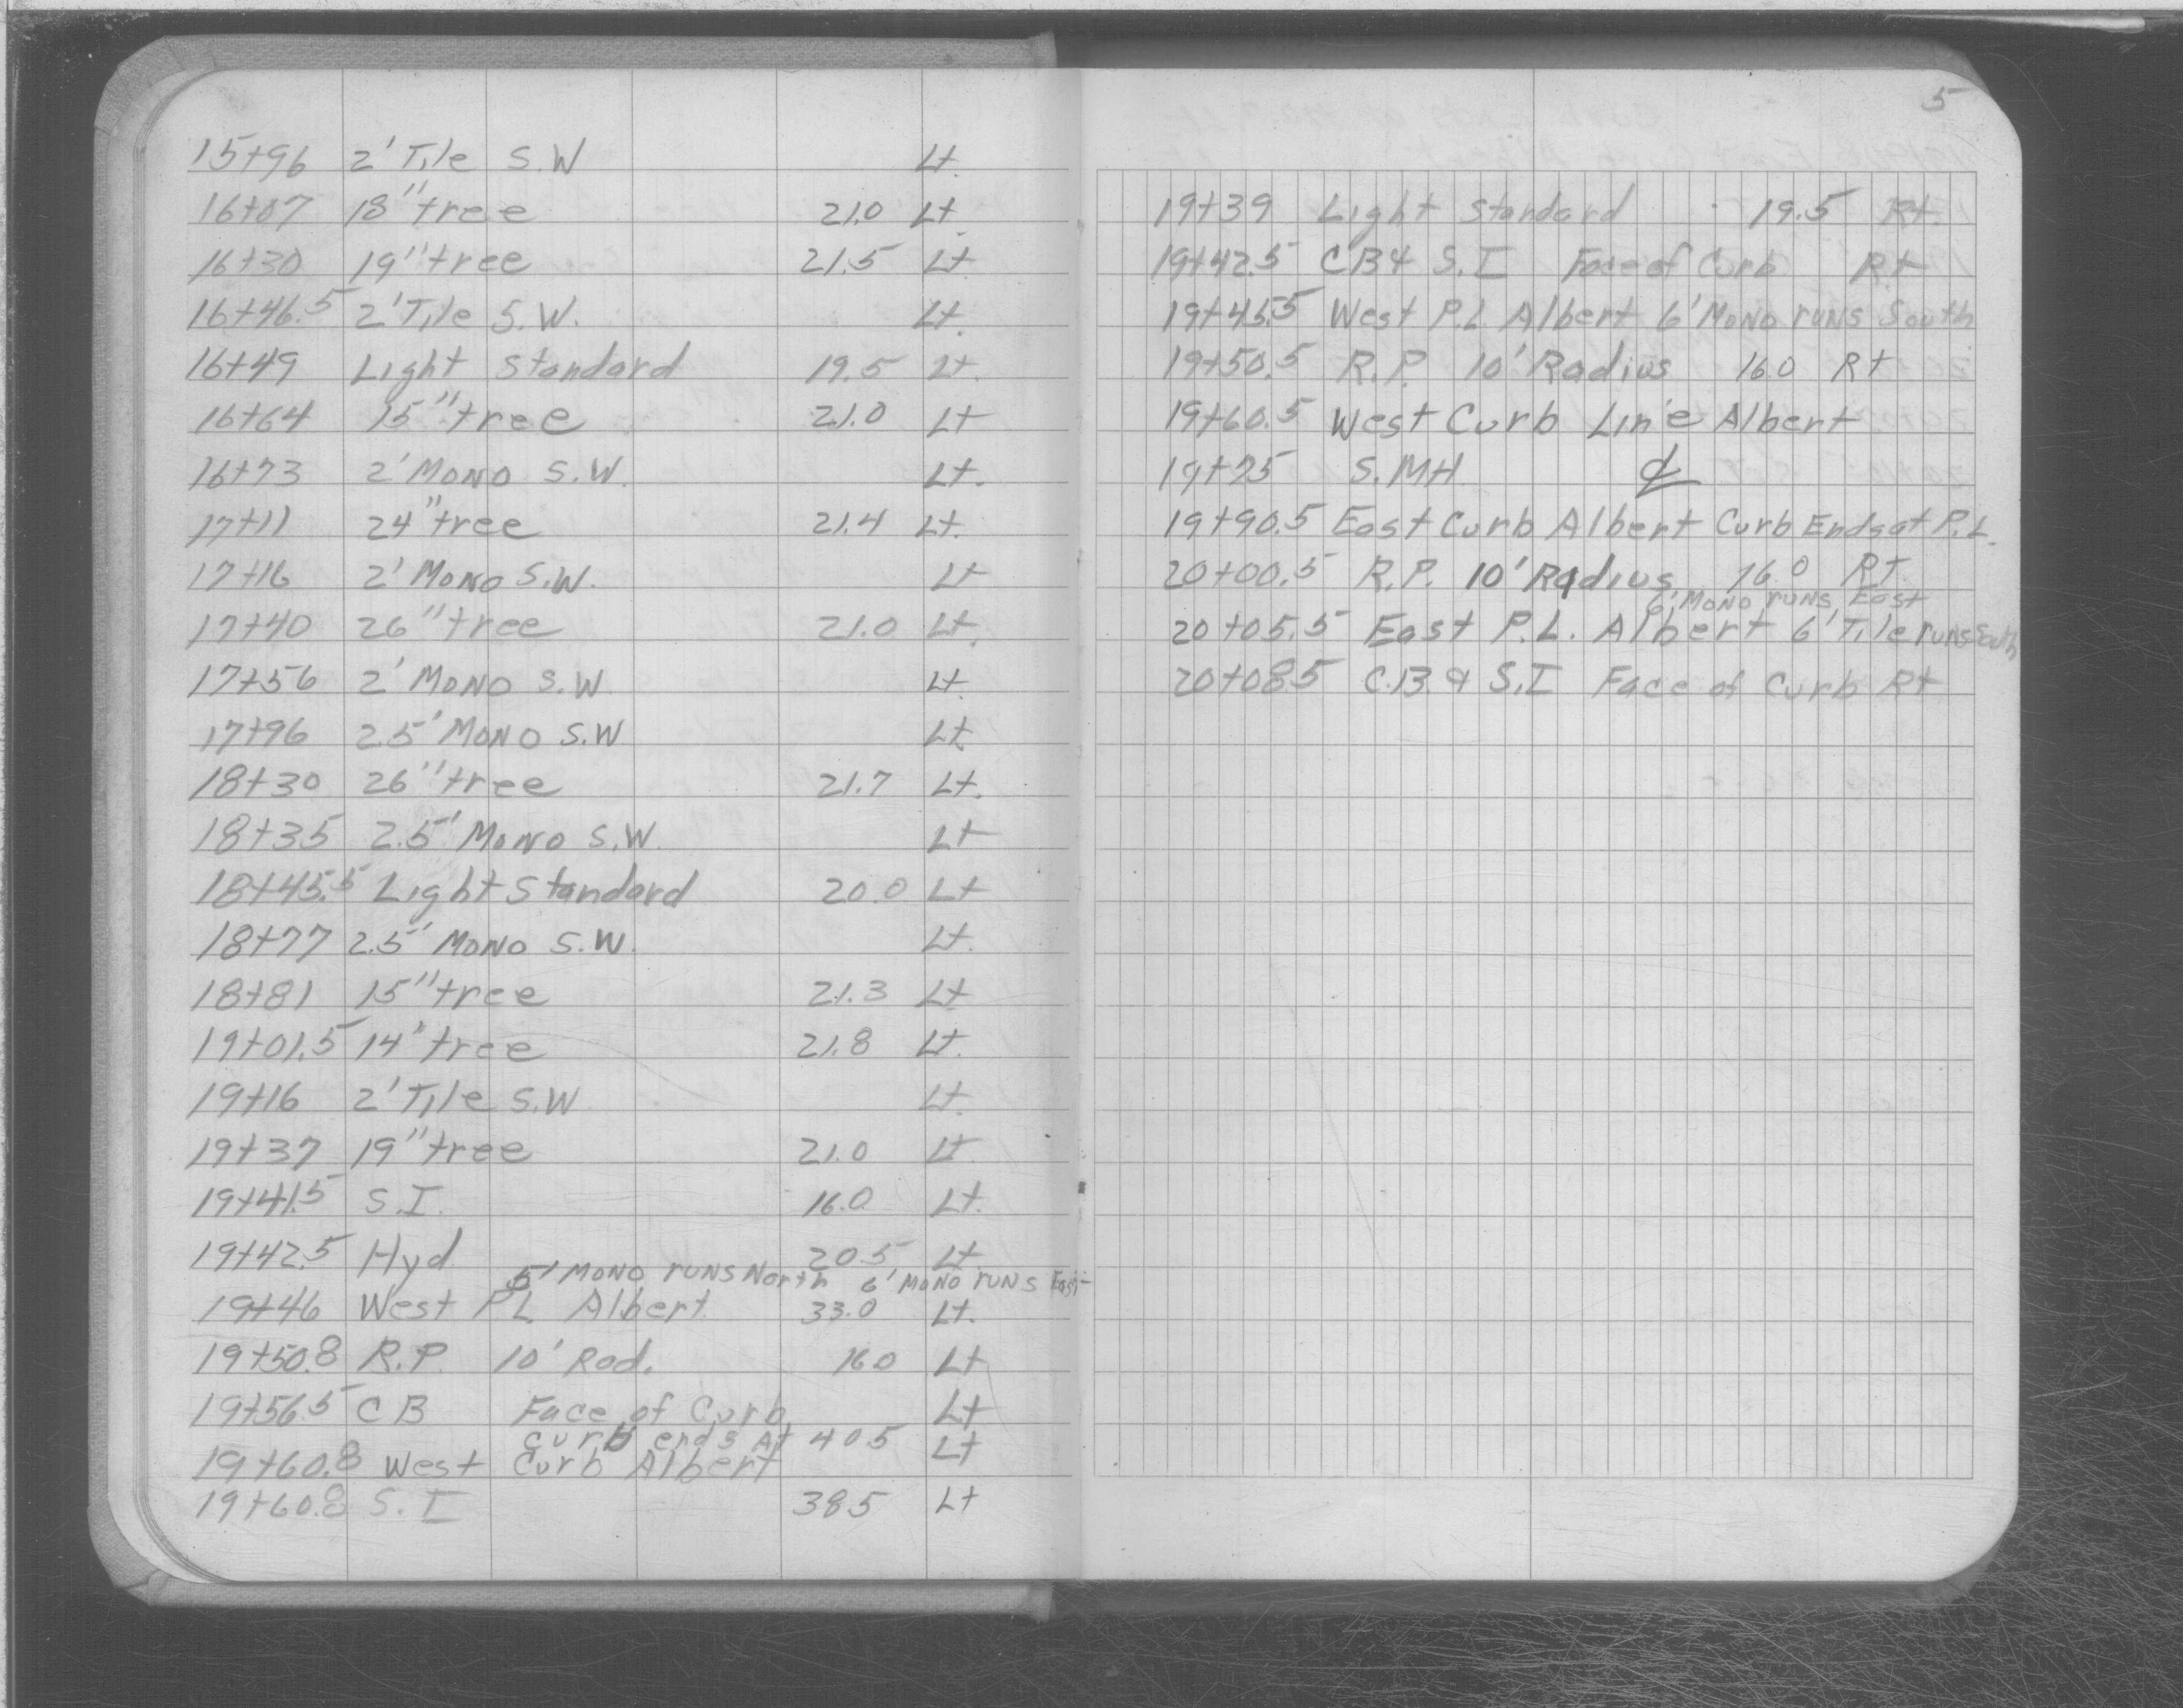 15+96 2' Tile S.W Lt.
16+07 18" tree 21.0 Lt.
16+30 19" tree 21.5 Lt.
16+46.5 2' Tile S.W. Lt.
16+49 Light Standard 19.5 Lt.
16+64 15" tree 21.0 Lt
16+73 2' Mono S.W. Lt.
17+11 24" tree 21.4 Lt.
17+16 2' Mono S.W. Lt
17+40 26" tree 21.0 Lt.
17+56 2' Mono S.W. Lt.
17+96 2.5' Mono S.W Lt.
18+30 26" tree 21.7 Lt.
18+35 2.5' Mono S.W. Lt
18+45.5 Light Standard 20.0 Lt
18+77 2.5' Mono S.W. Lt.
18+81 15" tree 21.3 Lt
19+01.5 14" tree 21.8 Lt.
19+16 2' Tile S.W Lt.
19+37 19" tree 21.0 Lt
19+41.5 S.I. 16.0 Lt.
19+42.5 Hyd 20.5 Lt
5' Mono runs North 6' Mono runs East
19+46 West PL Albert 33.0 Lt.
19+50.8 R.P. 10' Rad. 16.0 Lt
19+56.5 CB Face of Curb Lt
curb ends At 40.5 Lt
19+60.8 West Curb Albert
19+60.8 S.I 38.5 Lt
5
19+39 Light Standard 19.5 Rt.
19+42.5 CB & S.I Face of Curb Rt
19+45.5 West P.L. Albert 6' Mono runs South
19+50.5 R.P. 10' Radius 16.0 Rt
19+60.5 West Curb Line Albert
19+75 S.MH ℄
19+90.5 East Curb Albert Curb Ends at P.L.
20+00.5 R.P. 10' Radius 16.0 Rt.
6' Mono runs East
20+05.5 East P.L. Albert 6' Tile runs South
20+08.5 C.B. & S.I Face of Curb Rt